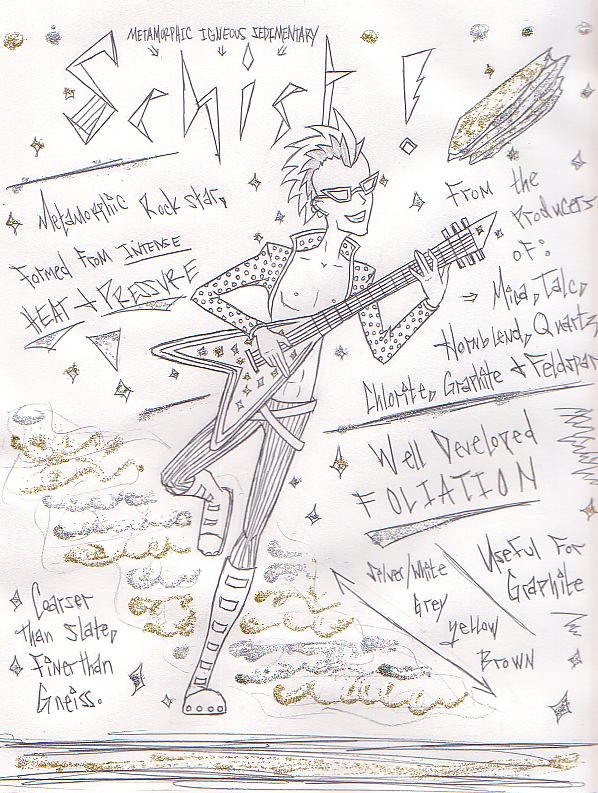 METAMORPHIC IGNEOUS SEDIMENTARY
Schist!
Metamorphic Rock star,
Formed From INTENSE
HEAT + PRESSURE
From the
Producers
of:
→ Mica, Talc,
Hornblend, Quartz,
Chlorite, Graphite + Feldspar
Well Developed
FOLIATION
Silver/White
Grey
Yellow
Brown
Useful For
Graphite
Coarser
than Slate,
Finer than
Gneiss.